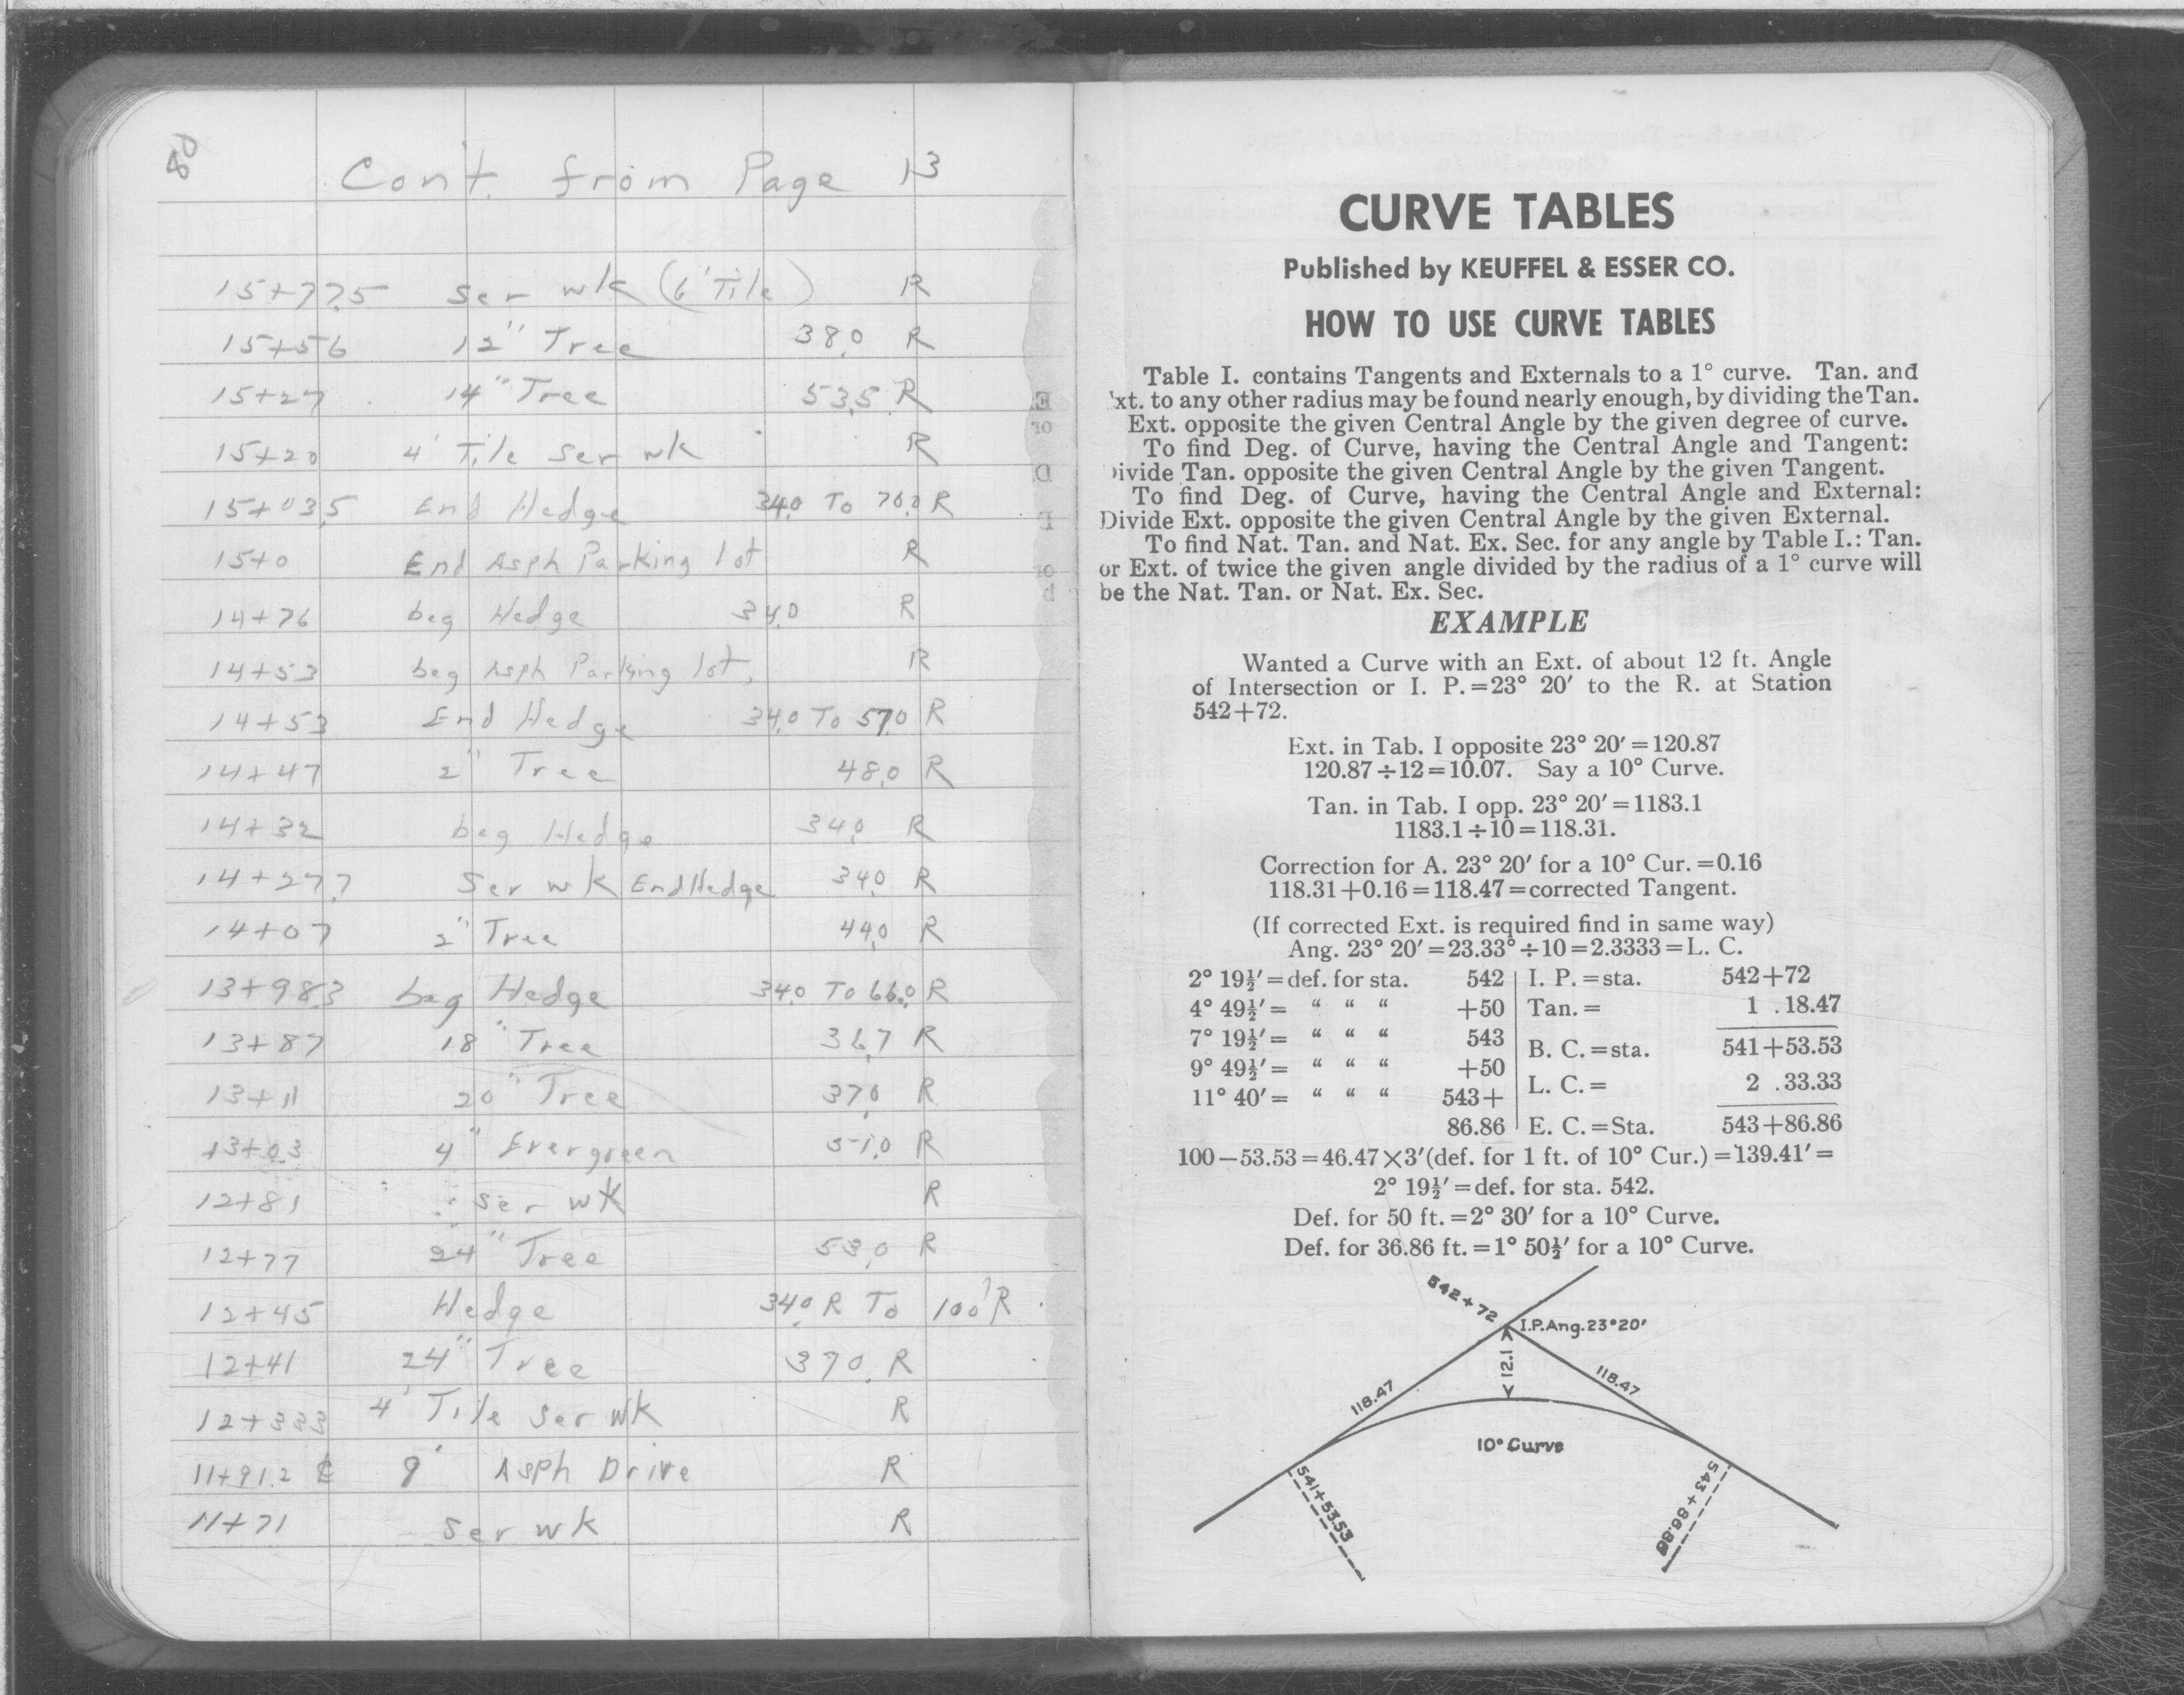 80
Con't. from Page 13
15+77.5 Ser wk (6' Tile) R
15+56 12" Tree 38.0 R
15+27 14" Tree 53.5 R
15+20 4' Tile Ser wk R
15+03.5 End Hedge 34.0 To 70.0 R
15+0 End Asph Parking lot R
14+76 beg Hedge 34.0 R
14+53 beg Asph Parking lot. R
14+53 End Hedge 34.0 To 57.0 R
14+47 2" Tree 48.0 R
14+32 beg Hedge 34.0 R
14+27.7 Ser wk End Hedge 34.0 R
14+07 2" Tree 44.0 R
13+98.3 beg Hedge 34.0 To 66.0 R
13+87 18" Tree 36.7 R
13+11 20" Tree 37.0 R
13+03 4" Evergreen 51.0 R
12+81 Ser wk R
12+77 24" Tree 53.0 R
12+45 Hedge 34.0 R To 100' R
12+41 24" Tree 37.0 R
12+33.3 4' Tile Ser wk R
11+91.2 ℄ 9' Asph Drive R
11+71 Ser wk R
CURVE TABLES
Published by KEUFFEL & ESSER CO.
HOW TO USE CURVE TABLES
Table I. contains Tangents and Externals to a 1° curve. Tan. and
'xt. to any other radius may be found nearly enough, by dividing the Tan.
Ext. opposite the given Central Angle by the given degree of curve.
To find Deg. of Curve, having the Central Angle and Tangent:
ivide Tan. opposite the given Central Angle by the given Tangent.
To find Deg. of Curve, having the Central Angle and External:
Divide Ext. opposite the given Central Angle by the given External.
To find Nat. Tan. and Nat. Ex. Sec. for any angle by Table I.: Tan.
or Ext. of twice the given angle divided by the radius of a 1° curve will
be the Nat. Tan. or Nat. Ex. Sec.
EXAMPLE
Wanted a Curve with an Ext. of about 12 ft. Angle
of Intersection or I. P.=23° 20′ to the R. at Station
542+72.
Ext. in Tab. I opposite 23° 20′=120.87
120.87÷12=10.07. Say a 10° Curve.
Tan. in Tab. I opp. 23° 20′=1183.1
1183.1÷10=118.31.
Correction for A. 23° 20′ for a 10° Cur.=0.16
118.31+0.16=118.47=corrected Tangent.
(If corrected Ext. is required find in same way)
Ang. 23° 20′=23.33°÷10=2.3333=L. C.
2° 19½′=def. for sta. 542 I. P.=sta. 542+72
4° 49½′= “ “ “ +50 Tan.= 1 .18.47
7° 19½′= “ “ “ 543 B. C.=sta. 541+53.53
9° 49½′= “ “ “ +50 L. C.= 2 .33.33
11° 40′= “ “ “ 543+
86.86 E. C.=Sta. 543+86.86
100−53.53=46.47×3′(def. for 1 ft. of 10° Cur.)=139.41′=
2° 19½′=def. for sta. 542.
Def. for 50 ft.=2° 30′ for a 10° Curve.
Def. for 36.86 ft.=1° 50½′ for a 10° Curve.
542+72
I.P.Ang.23°20′
12.1
118.47
118.47
10° Curve
541+53.53
543+86.86